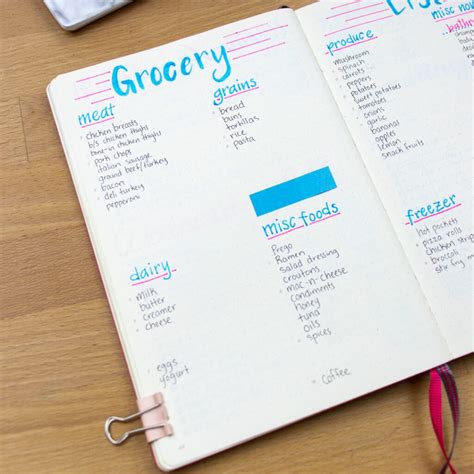 Grocery
meat
chicken breasts
b/s chicken thighs
bone-in chicken thighs
pork chops
italian sausage
ground beef/turkey
bacon
deli turkey
pepperoni
grains
bread
buns
tortillas
rice
pasta
misc foods
Prego
Ramen
salad dressing
croutons
mac-n-cheese
condiments
honey
tuna
oils
spices
coffee
dairy
milk
butter
creamer
cheese
eggs
yogurt
produce
mushroom
spinach
carrots
peppers
potatoes
sweet potatoes
tomatoes
onions
garlic
bananas
apples
lemon
snack fruits
misc
freezer
hot pockets
pizza rolls
chicken strip
broccoli
stir fry